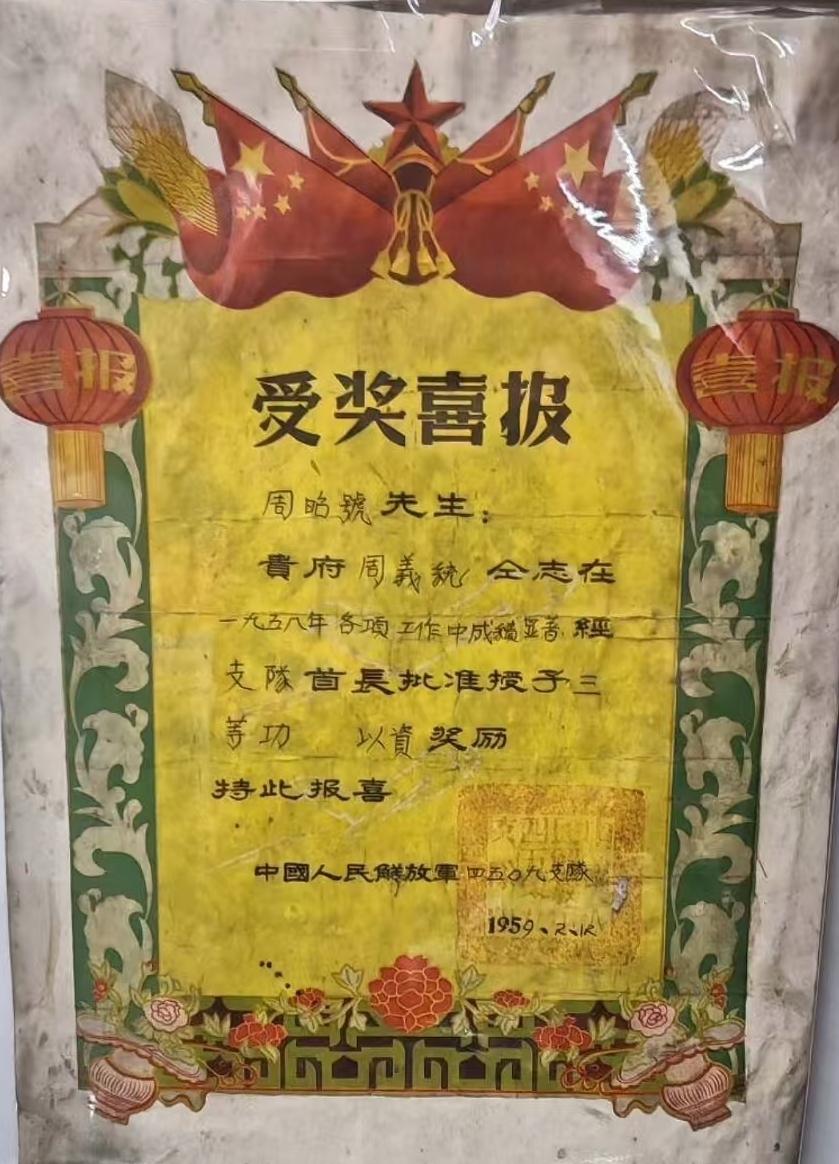 喜报
喜报
受奖喜报
周昭號先生：
貴府周義統仝志在
一九五八年各項工作中成績显著經
支隊首長批准授予三
等功 以資奖励
特此报喜
中國人民解放軍四五0九支隊
1959、2、12